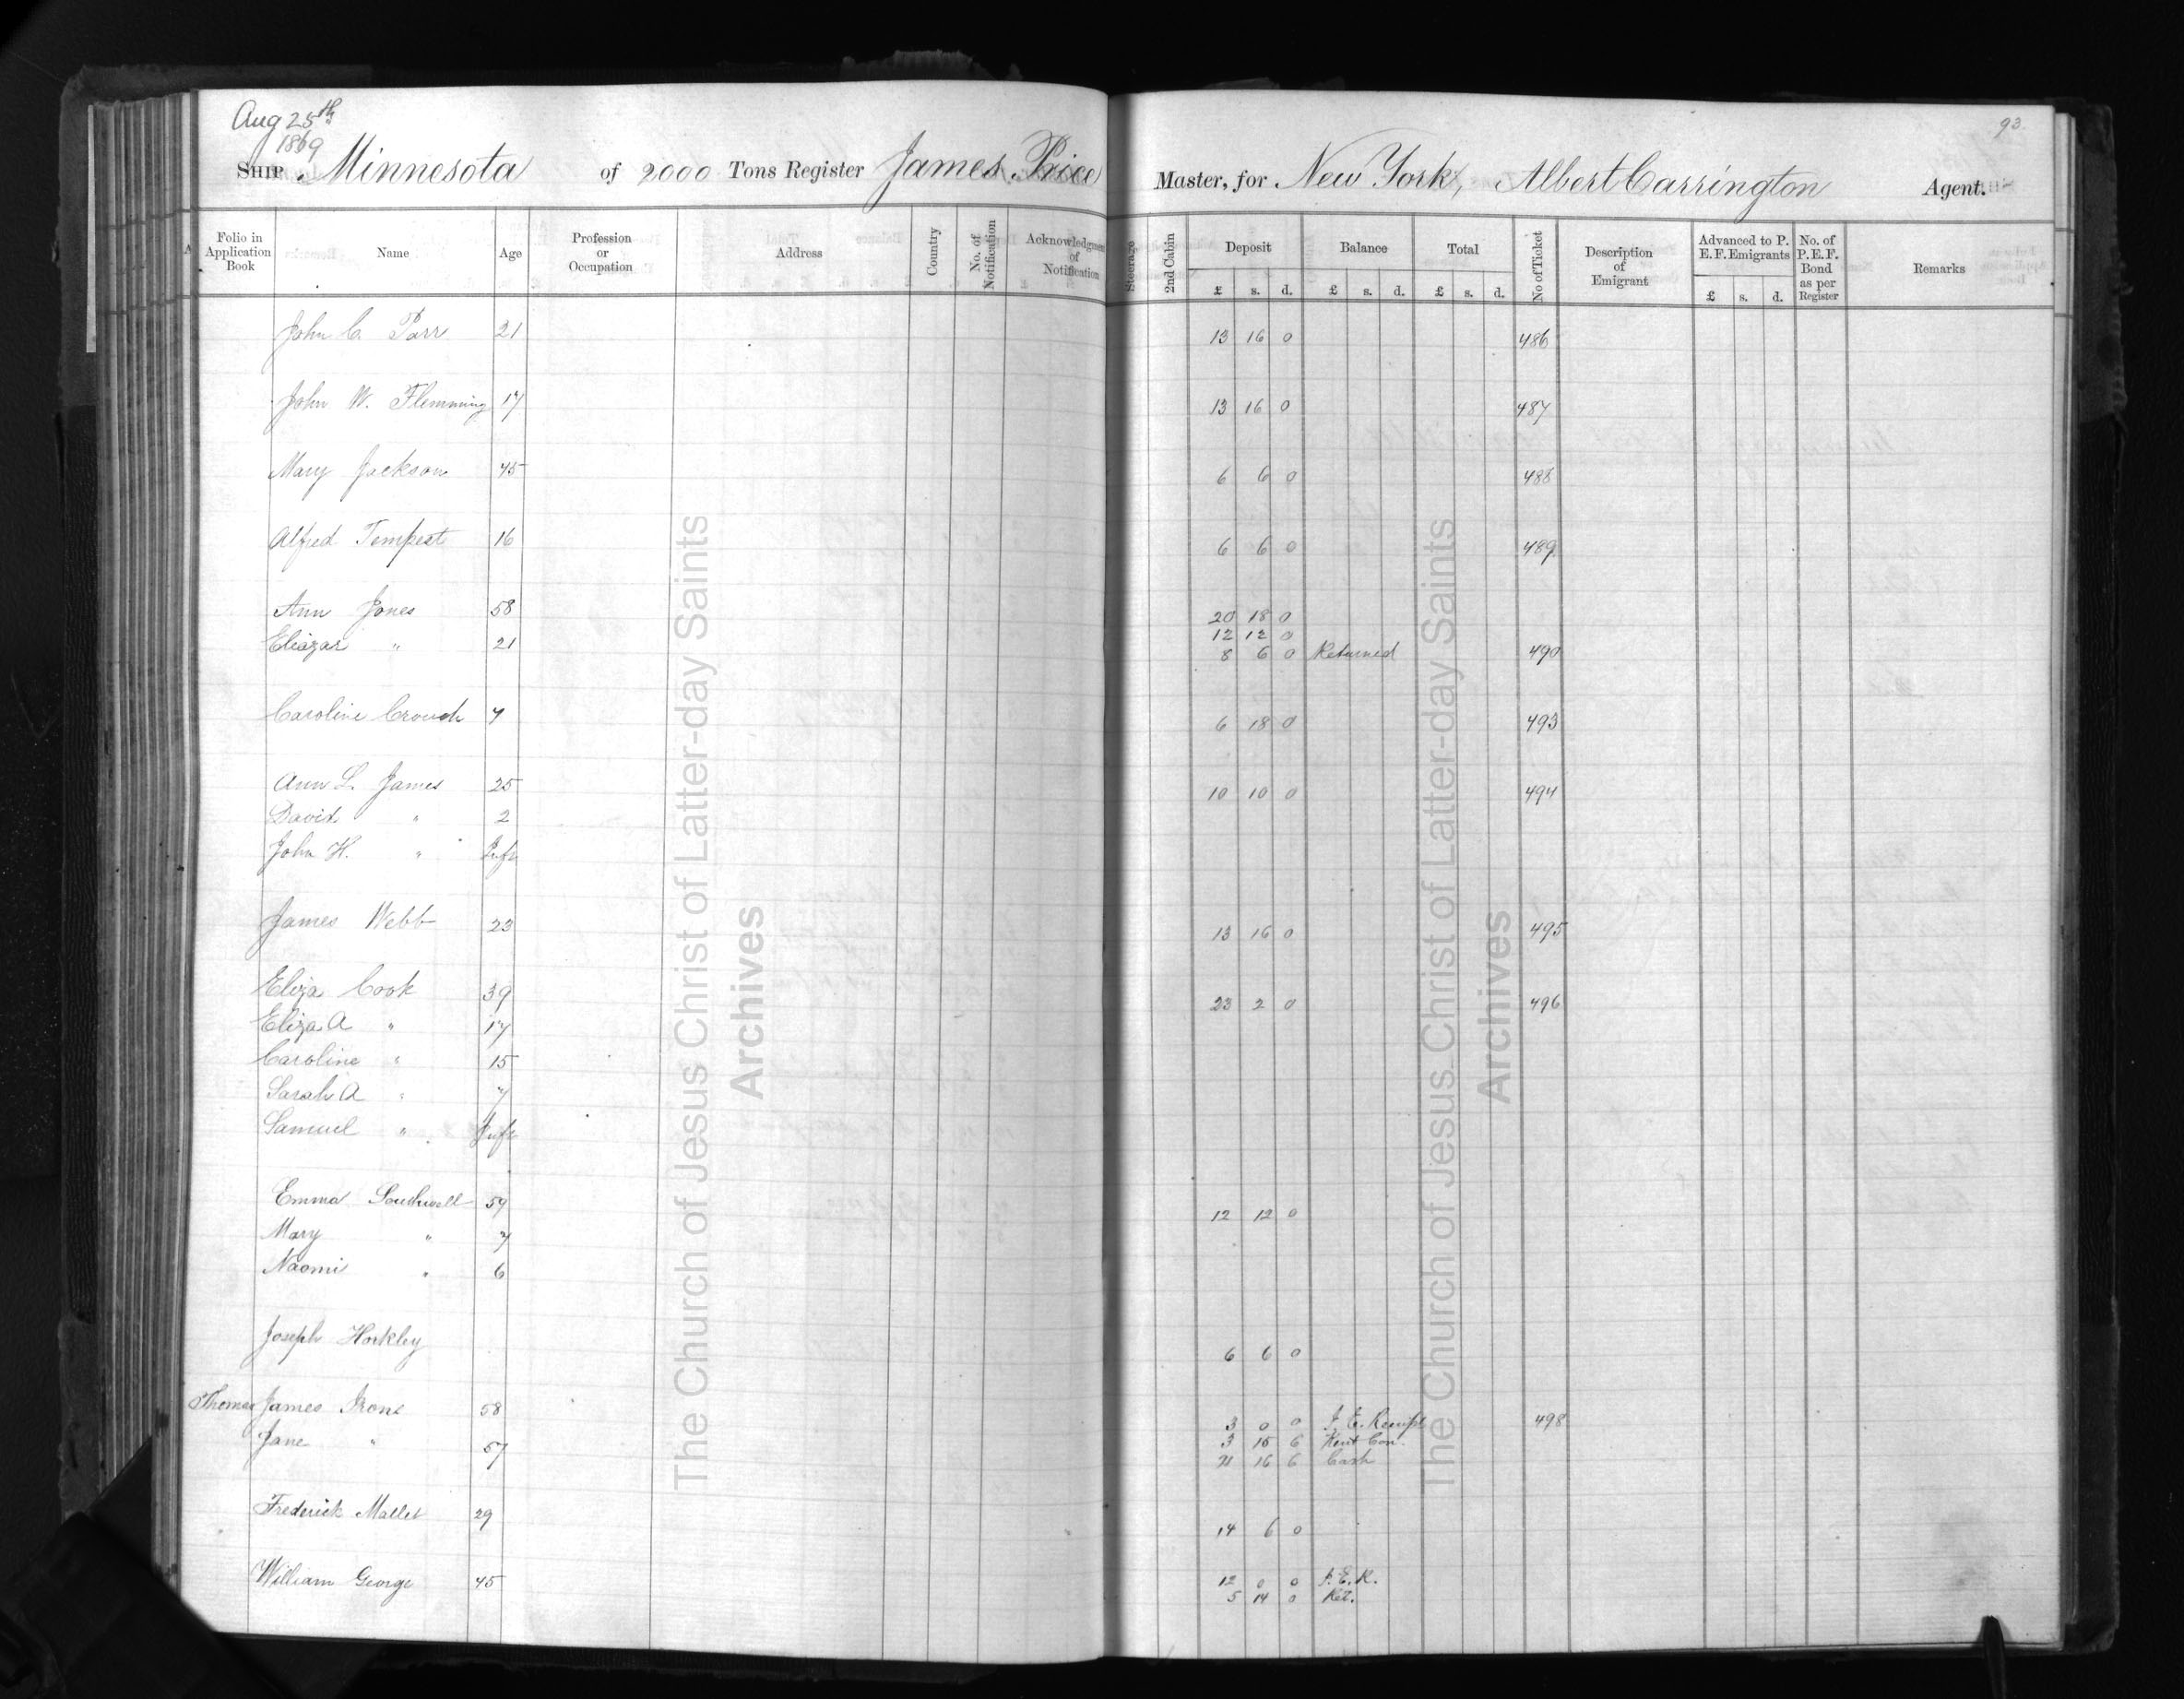 93
Aug 25th
1869
SHIP Minnesota of 2000 Tons Register James Price Master, for New York, Albert Carrington Agent.
Folio in Application Book Name Age Profession or Occupation Address Country No. of Notification Acknowledgment of Notification Steerage 2nd Cabin Deposit Balance Total No of Ticket Description of Emigrant Advanced to P. E. F. Emigrants No. of P. E. F. Bond as per Register Remarks
£ s. d. £ s. d. £ s. d. £ s. d.
John C. Parr 21 13 16 0 486
John W. Flemming 17 13 16 0 487
Mary Jackson 45 6 6 0 488
Alfred Tempest 16 6 6 0 489
Ann Jones 58 20 18 0
12 12 0
Eliazar " 21 8 6 0 Returned 490
Caroline Crouch 7 6 18 0 493
Ann L. James 25 10 10 0 494
David " 2
John H. " Inft
James Webb 23 13 16 0 495
Eliza Cook 39 23 2 0 496
Eliza A " 17
Caroline " 15
Sarah A " 7
Samuel " Inft
Emma Southwell 59 12 12 0
Mary " 7
Naomi " 6
Joseph Horkley 6 6 0
Thomas James Irons 58 3 0 0 498
Jane " 57 3 15 6 Kent Con.
16 6 Cash
Frederick Mallet 29 14 6 0
William George 45 12 0 0 J. E. K.
5 14 0 Ret.
The Church of Jesus Christ of Latter-day Saints
Archives
The Church of Jesus Christ of Latter-day Saints
Archives